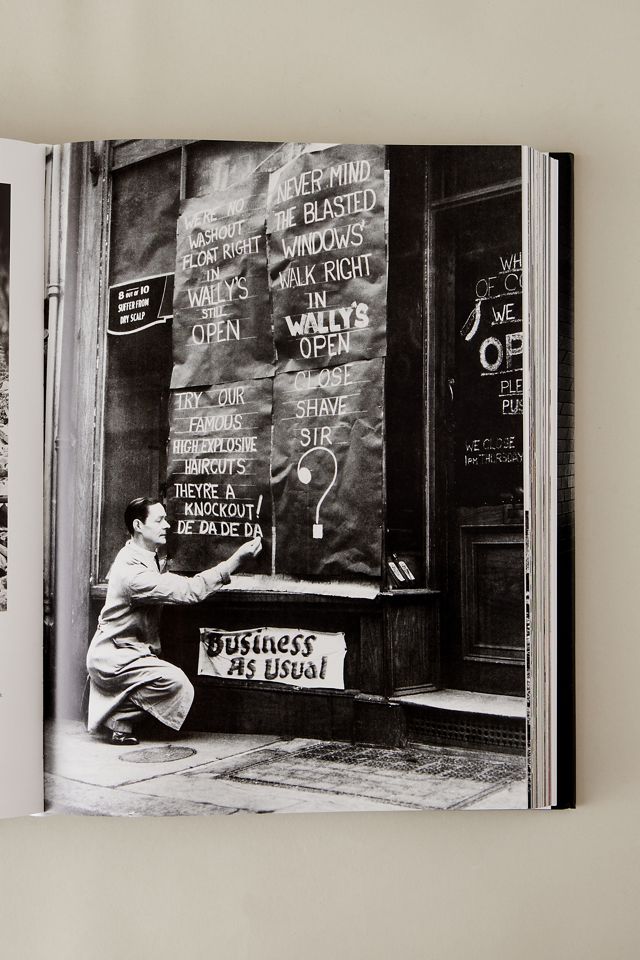 WE'RE NO
WASHOUT
FLOAT RIGHT
IN
WALLY'S
STILL
OPEN
NEVER MIND
THE BLASTED
WINDOWS'
WALK RIGHT
IN
WALLY'S
OPEN
8 OUT OF 10
SUFFER FROM
DRY SCALP
TRY OUR
FAMOUS
HIGH EXPLOSIVE
HAIRCUTS
THEY'RE A
KNOCKOUT!
DE DA DE DA
CLOSE
SHAVE
SIR
?
BUSINESS
AS USUAL
WH
OF CO
WE
OP
PLE
PUS
WE CLOSE
1PM THURSDAY